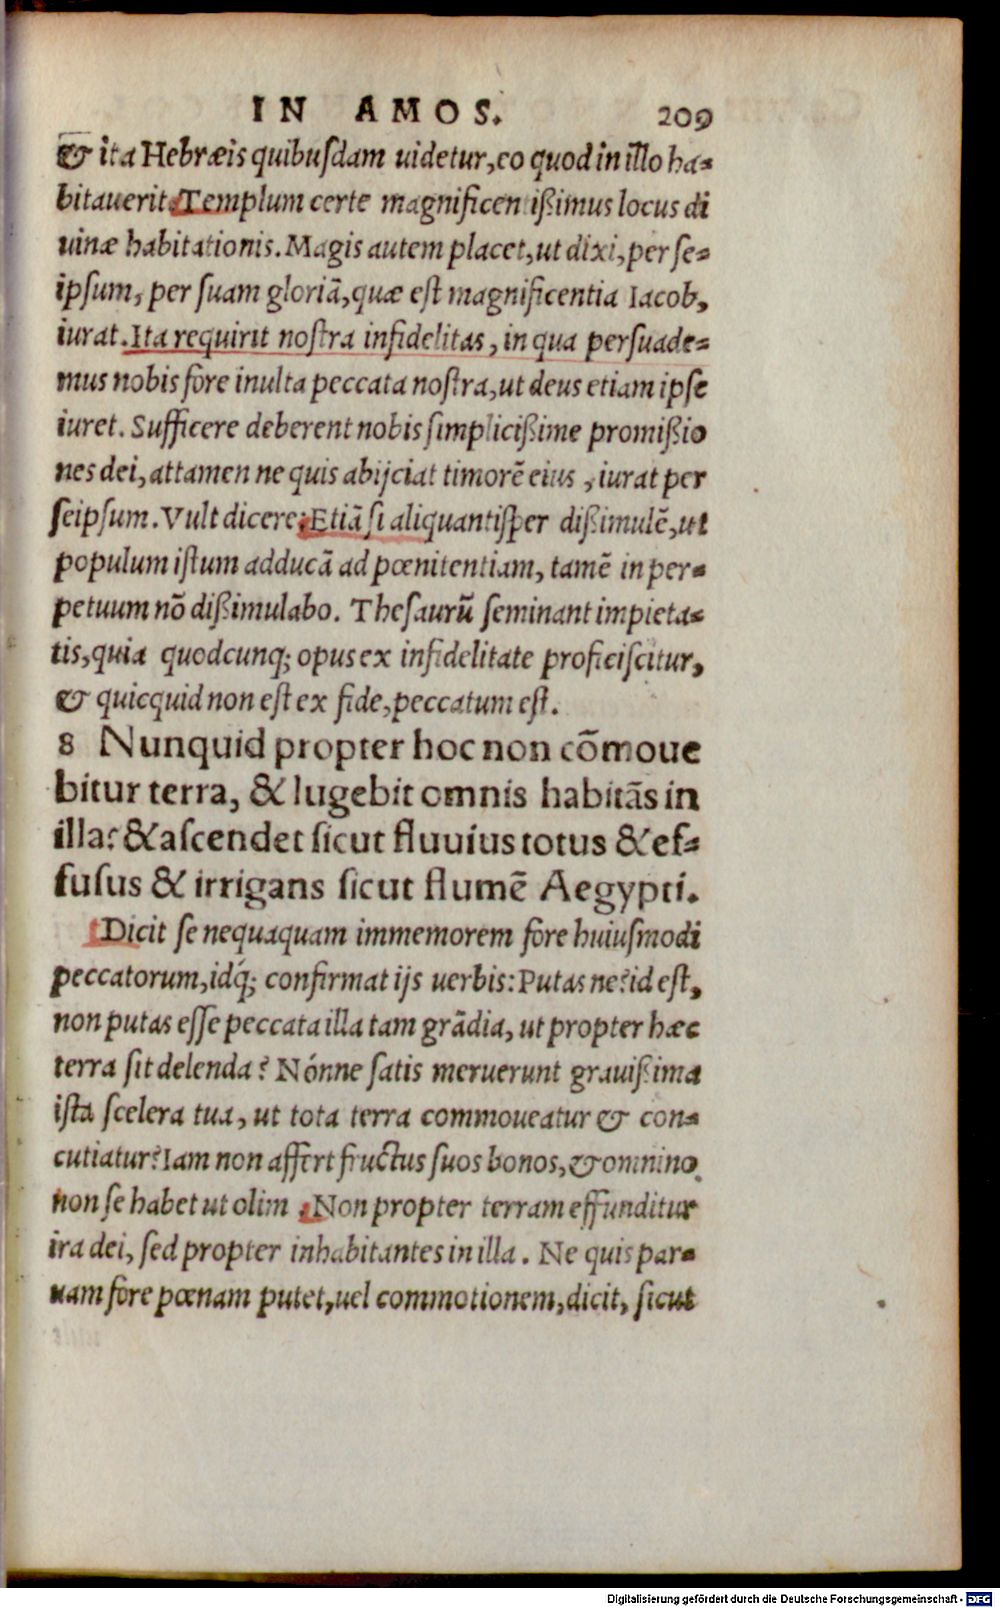 IN AMOS. 209
& ita Hebræis quibusdam uidetur, eo quod in illo ha-
bitauerit. Templum certe magnificentißimus locus di
uinæ habitationis. Magis autem placet, ut dixi, per se-
ipsum, per suam gloriā, quæ est magnificentia Iacob,
iurat. Ita requirit nostra infidelitas, in qua persuade-
mus nobis fore inulta peccata nostra, ut deus etiam ipse
iuret. Sufficere deberent nobis simplicißime promißio
nes dei, attamen ne quis abijciat timorē eius, iurat per
seipsum. Vult dicere: Etiā si aliquantisper dißimulē, ut
populum istum adducā ad pœnitentiam, tamē in per-
petuum nō dißimulabo. Thesaurū seminant impieta-
tis, quia quodcunq; opus ex infidelitate proficiscitur,
& quicquid non est ex fide, peccatum est.
8 Nunquid propter hoc non cōmoue
bitur terra, & lugebit omnis habitās in
illa? & ascendet sicut fluuius totus & ef-
fusus & irrigans sicut flumē Aegypti.
Dicit se nequaquam immemorem fore huiusmodi
peccatorum, idq́; confirmat ijs uerbis: Putas ne? id est,
non putas esse peccata illa tam grādia, ut propter hæc
terra sit delenda? Nónne satis meruerunt grauißima
ista scelera tua, ut tota terra commoueatur & con-
cutiatur? Iam non affert fructus suos bonos, & omnino
non se habet ut olim. Non propter terram effunditur
ira dei, sed propter inhabitantes in illa. Ne quis par-
uam fore pœnam putet, uel commotionem, dicit, sicut
Digitalisierung gefördert durch die Deutsche Forschungsgemeinschaft - DFG